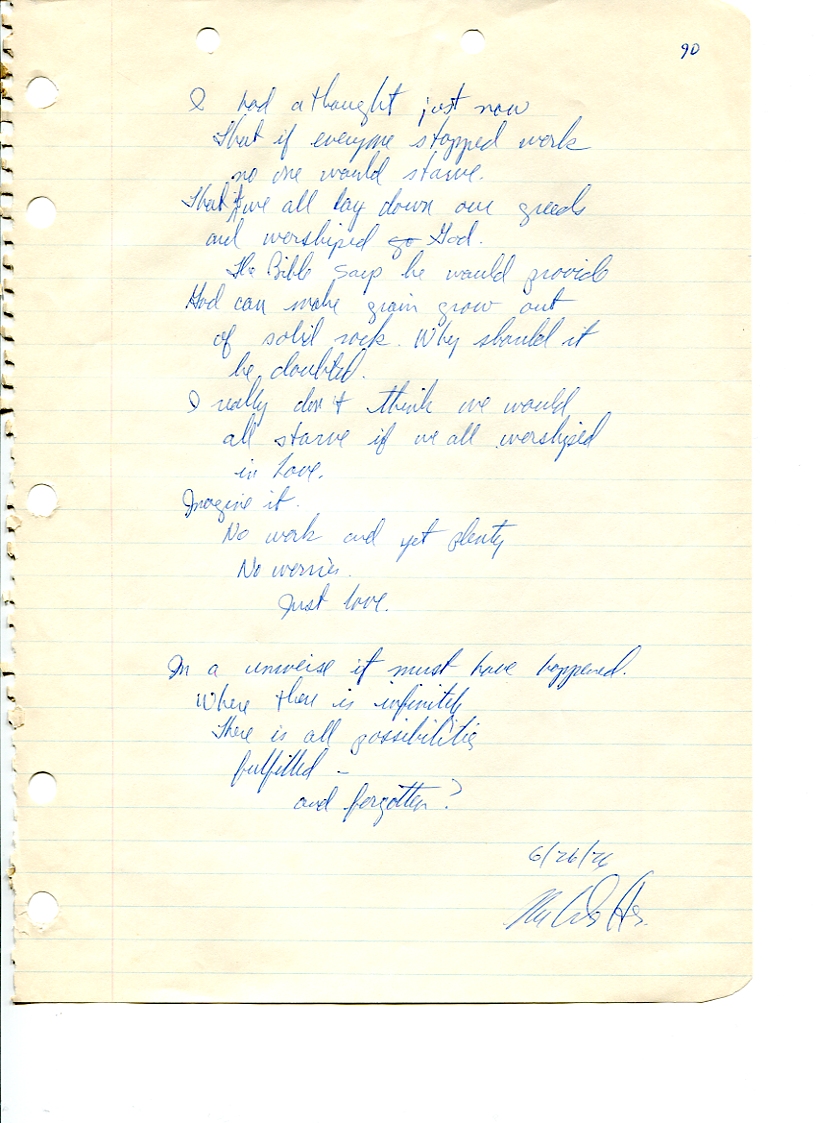 90
I had a thought just now
That if everyone stopped work
no one would starve.
That if we all lay down our greeds
and worshiped go God.
The Bible says he would provide
God can make grain grow out
of solid rock. Why should it
be doubted.
I really don't think we would
all starve if we all worshiped
in Love.
Imagine it.
No work and yet plenty
No worries.
Just love.
In a universe it must have happened.
Where there is infinity
There is all possibilities
fulfilled –
and forgotten?
6/26/76